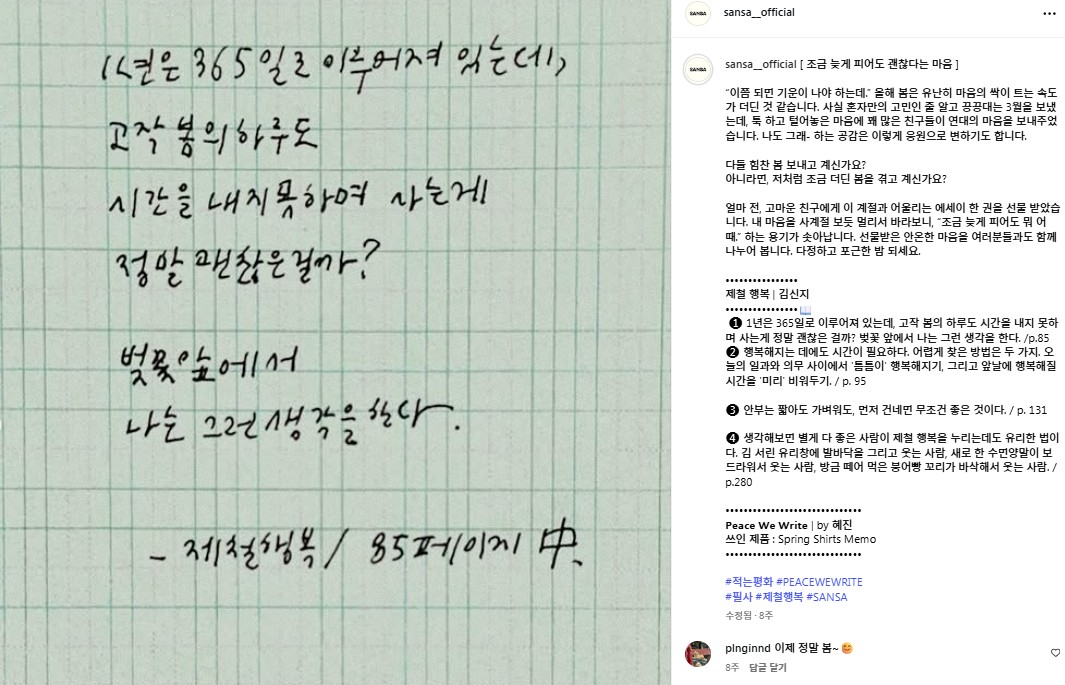 1년은 365일로 이루어져 있는데,
고작 봄의 하루도
시간을 내지 못하며 사는게
정말 괜찮은걸까?
벚꽃 앞에서
나는 그런 생각을 한다.
- 제철행복 / 85페이지 中.
SANSA
sansa__official
SANSA
sansa__official [ 조금 늦게 피어도 괜찮다는 마음 ]
“이쯤 되면 기운이 나야 하는데.” 올해 봄은 유난히 마음의 싹이 트는 속도
가 더딘 것 같습니다. 사실 혼자만의 고민인 줄 알고 끙끙대는 3월을 보냈
는데, 툭 하고 털어놓은 마음에 꽤 많은 친구들이 연대의 마음을 보내주었
습니다. 나도 그래- 하는 공감은 이렇게 응원으로 변하기도 합니다.
다들 힘찬 봄 보내고 계신가요?
아니라면, 저처럼 조금 더딘 봄을 겪고 계신가요?
얼마 전, 고마운 친구에게 이 계절과 어울리는 에세이 한 권을 선물 받았습
니다. 내 마음을 사계절 보듯 멀리서 바라보니, “조금 늦게 피어도 뭐 어
때.” 하는 용기가 솟아납니다. 선물받은 안온한 마음을 여러분들과도 함께
나누어 봅니다. 다정하고 포근한 밤 되세요.
••••••••••••••••
제철 행복 | 김신지
••••••••••••••••📖
❶ 1년은 365일로 이루어져 있는데, 고작 봄의 하루도 시간을 내지 못하
며 사는게 정말 괜찮은 걸까? 벚꽃 앞에서 나는 그런 생각을 한다. /p.85
❷ 행복해지는 데에도 시간이 필요하다. 어렵게 찾은 방법은 두 가지. 오
늘의 일과와 의무 사이에서 ‘틈틈이’ 행복해지기, 그리고 앞날에 행복해질
시간을 ‘미리’ 비워두기. / p. 95
❸ 안부는 짧아도 가벼워도, 먼저 건네면 무조건 좋은 것이다. / p. 131
❹ 생각해보면 별게 다 좋은 사람이 제철 행복을 누리는데도 유리한 법이
다. 김 서린 유리창에 발바닥을 그리고 웃는 사람, 새로 한 수면양말이 보
드라워서 웃는 사람, 방금 떼어 먹은 붕어빵 꼬리가 바삭해서 웃는 사람. /
p.280
••••••••••••••••••••••••••••••
Peace We Write | by 혜진
쓰인 제품 : Spring Shirts Memo
••••••••••••••••••••••••••••••
#적는평화 #PEACEWEWRITE
#필사 #제철행복 #SANSA
수정됨 · 8주
plnginnd 이제 정말 봄~🥰
8주 답글 달기